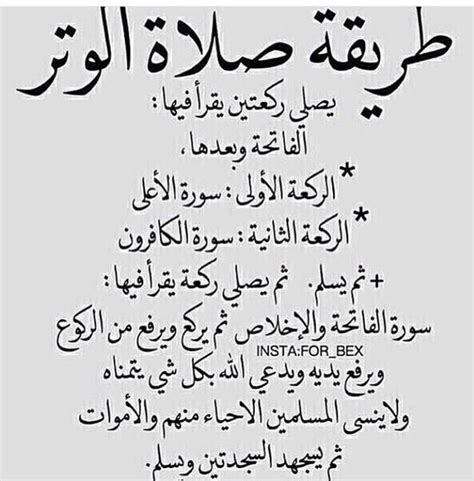 طريقة صلاة الوتر
يصلي ركعتين يقرأ فيها :
الفاتحة وبعدها ،
* الركعة الأولى : سورة الأعلى
* الركعة الثانية : سورة الكافرون
+ ثم يسلم. ثم يصلي ركعة يقرأ فيها :
سورة الفاتحة والإخلاص ثم يركع ويرفع من الركوع
INSTA:FOR_BEX
ويرفع يديه ويدعي الله بكل شي يتمناه
ولاينسى المسلمين الاحياء منهم والأموات
ثم يسجهد السجدتين ويسلم.